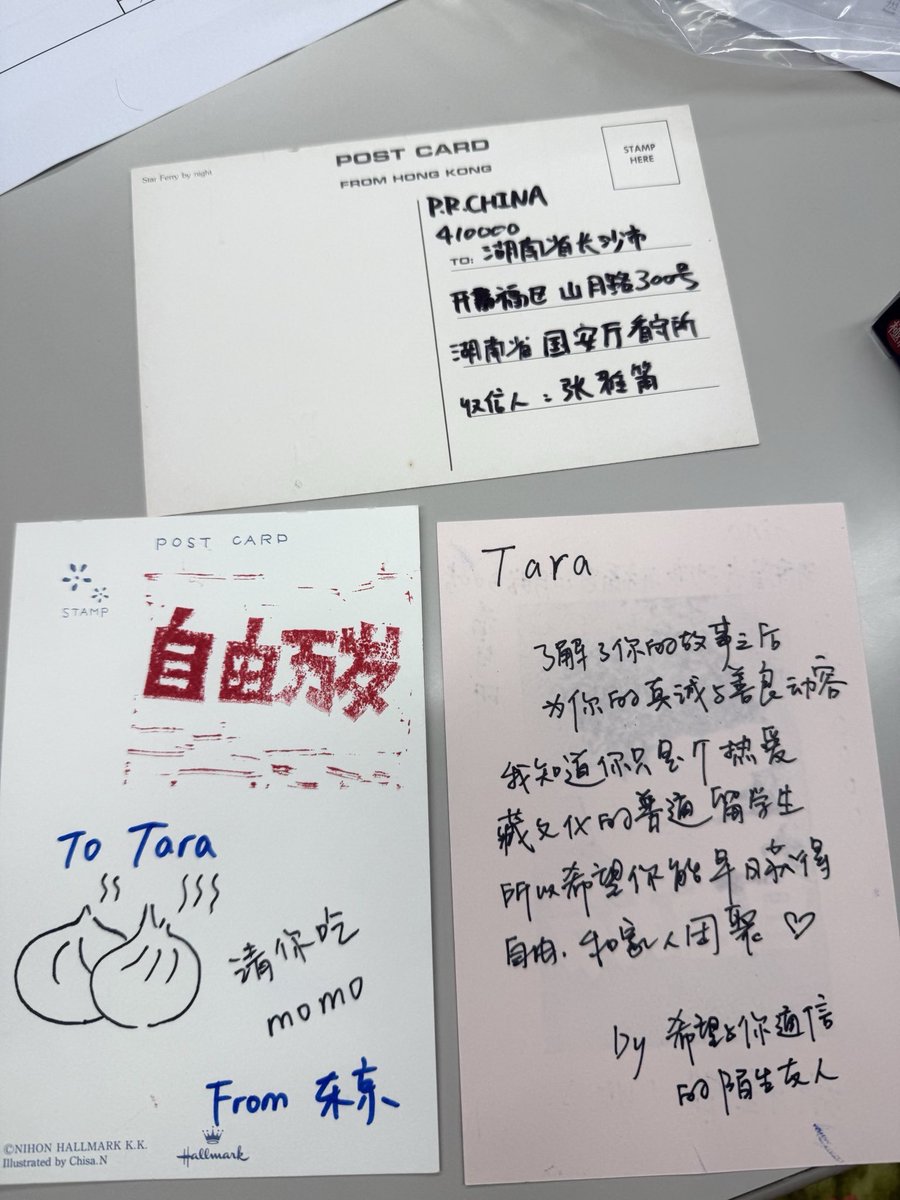 Star Ferry by night
POST CARD
FROM HONG KONG
STAMP
HERE
P.R.CHINA
410000
TO: 湖南省长沙市
开福区 山月路300号
湖南省 国安厅看守所
收信人：张雅笛
POST CARD
STAMP
自由万岁
To Tara
请你吃
momo
From 东东
©NIHON HALLMARK K.K.
Illustrated by Chisa.N
Hallmark
Tara
了解了你的故事之后
为你的真诚与善良动容
我知道你只是个热爱
藏文化的普通留学生
所以希望你能早日获得
自由，和家人团聚 ♡
by 希望与你通信
的陌生友人